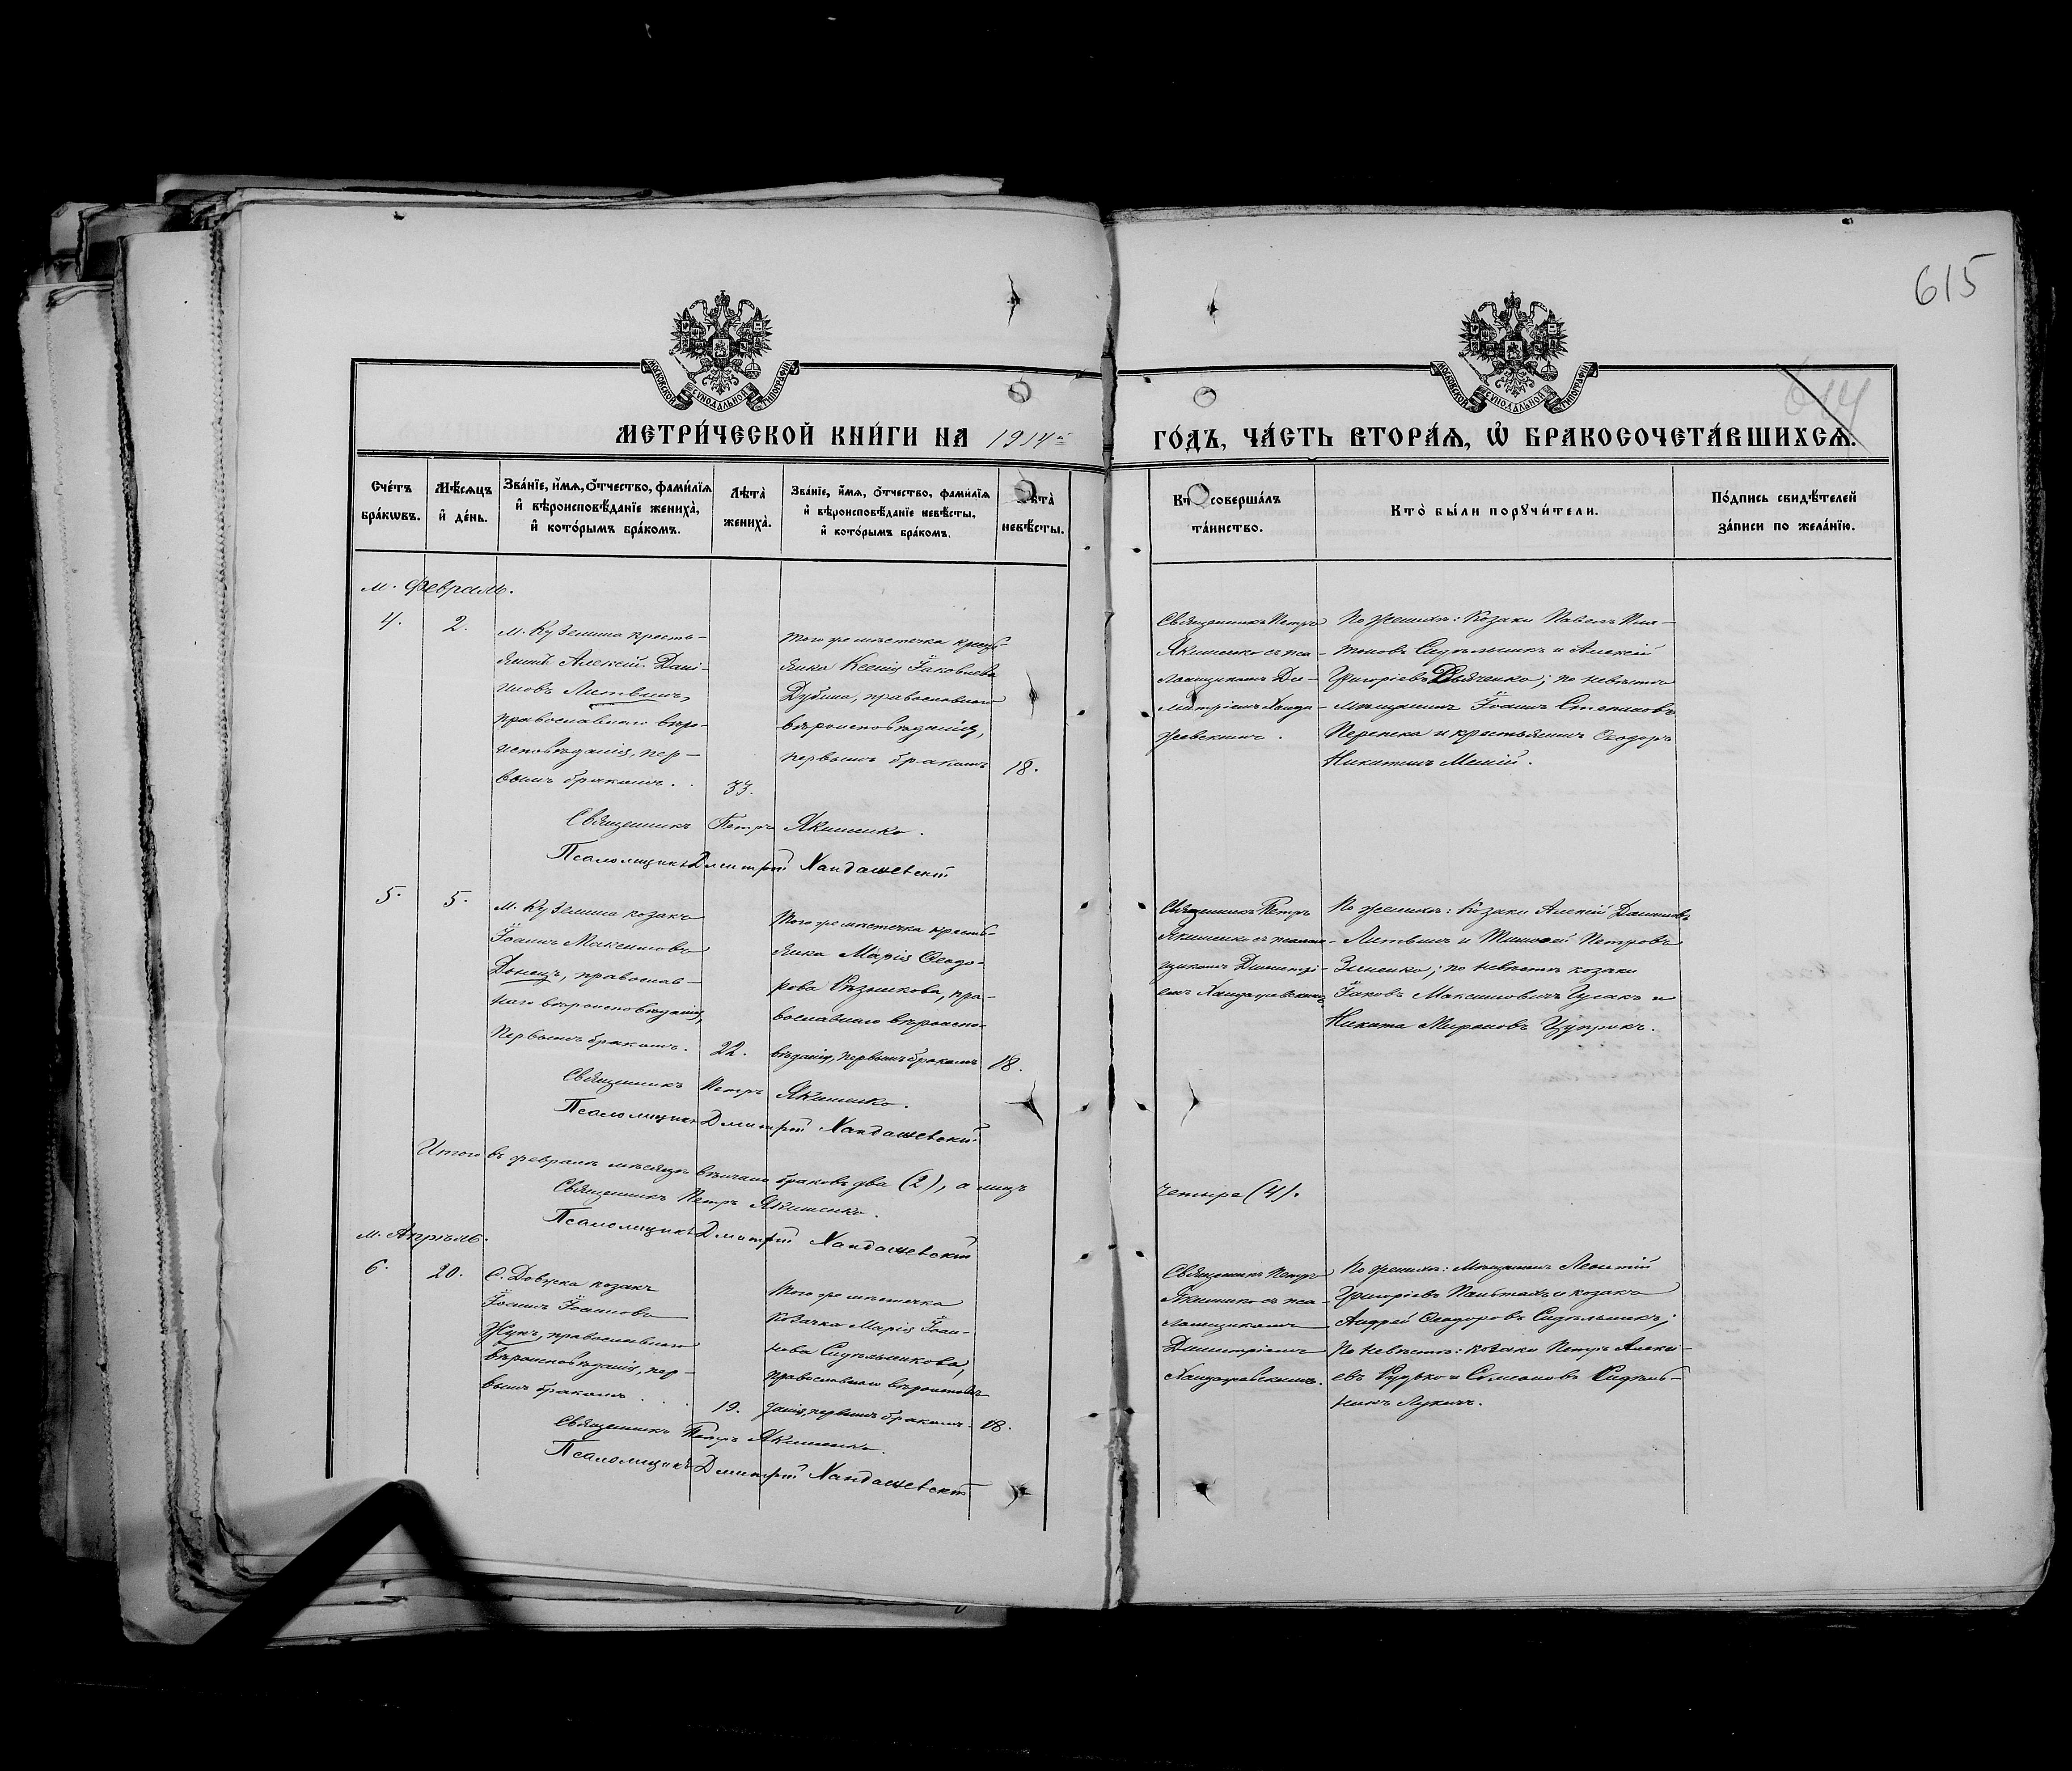 615
614
МОСКОВСКОЙ СУНОДАЛЬНОЙ ТИПОГРАФІИ
МОСКОВСКОЙ СУНОДАЛЬНОЙ ТИПОГРАФІИ
МЕТРИ́ЧЕСКОЙ КНИ́ГИ НА 1914 ГО́ДЪ, ЧА́СТЬ ВТОРА́Ѧ, Ѿ БРАКОСОЧЕТА́ВШИХСѦ.
Сче́тъ бра́кѡвъ.
Мѣ́сѧцъ и҆ де́нь.
Зва́нїе, и҆́мѧ, ѻ҆́тчество, фами́лїѧ и҆ вѣроисповѣ́данїе жениха̀, и҆ кото́рымъ бра́комъ.
Лѣта̀ жениха̀.
Зва́нїе, и҆́мѧ, ѻ҆́тчество, фами́лїѧ и҆ вѣроисповѣ́данїе невѣ́сты, и҆ кото́рымъ бра́комъ.
Лѣта̀ невѣ́сты.
Кто̀ соверша́лъ та́инство.
Кто̀ бы́ли порꙋчи́тели.
По́дпись свидѣ́телей за́писи по жела́нїю.
м. Февраль.
4.
2.
м. Куземина кресть-
янинъ Алексій Дані-
иловъ Литвинъ,
православнаго вѣро-
исповѣданія, пер-
вымъ бракомъ.
33.
Того же мѣстечка кресть-
янка Ксенія Іаковлева
Дубина, православнаго
вѣроисповѣданія,
первымъ бракомъ
18.
Священникъ Петръ
Якименко съ пса-
ломщикомъ Ди-
митріемъ Ханда-
жевскимъ.
По женихѣ: Козаки Павелъ Пла-
тоновъ Сидѣльникъ и Алексій
Григоріевъ Дьяченко; по невѣстѣ
мѣщанинъ Іоаннъ Стефановъ
Перепека и крестьянинъ Ѳеодоръ
Никитинъ Мешій.
Священникъ Петръ Якименко.
Псаломщикъ Дмитрій Хандажевскій
5.
5.
м. Куземина козакъ
Іоаннъ Максимовъ
Донецъ, православ-
наго вѣроисповѣданія,
первымъ бракомъ.
22.
Того же мѣстечка кресть-
янка Марія Ѳеодо-
рова, пра-
вославнаго вѣроиспо-
вѣданія, первымъ бракомъ
18.
Священникъ Петръ
Якименко съ псалом-
щикомъ Димитрі-
емъ Хандажевскимъ
По женихѣ: Козаки Алексій Даниловъ
Литвинъ и Тимоѳей Петровъ
Зиненко; по невѣстѣ козаки
Іаковъ Максимовичъ Гусакъ и
Никита Мироновъ Цуприкъ.
Священникъ Петръ Якименко.
Псаломщикъ Дмитрій Хандажевскій
Итого въ февралѣ мѣсяцѣ вѣнчано браковъ два (2), а лицъ четыре (4).
Священникъ Петръ Якименко.
Псаломщикъ Дмитрій Хандажевскій
м. Апрѣль.
6.
20.
С. Довжка козакъ
Іоаннъ Іоанновъ
Жукъ, православнаго
вѣроисповѣданія, пер-
вымъ бракомъ
19.
Того же мѣстечка
козачка Марія Іоан-
нова Сидѣльникова,
православнаго вѣроисповѣ-
данія, первымъ бракомъ.
18.
Священникъ Петръ
Якименко съ пса-
ломщикомъ
Димитріемъ
Хандажевскимъ.
По женихѣ: мѣщанинъ Леонтій
Григоріевъ и козакъ
Андрей Ѳеодоровъ Сидѣльникъ;
по невѣстѣ: козаки Петръ Алексі-
евъ Рудько и Симеоновъ Сидѣль-
никъ Лукичъ.
Священникъ Петръ Якименко.
Псаломщикъ Дмитрій Хандажевскій